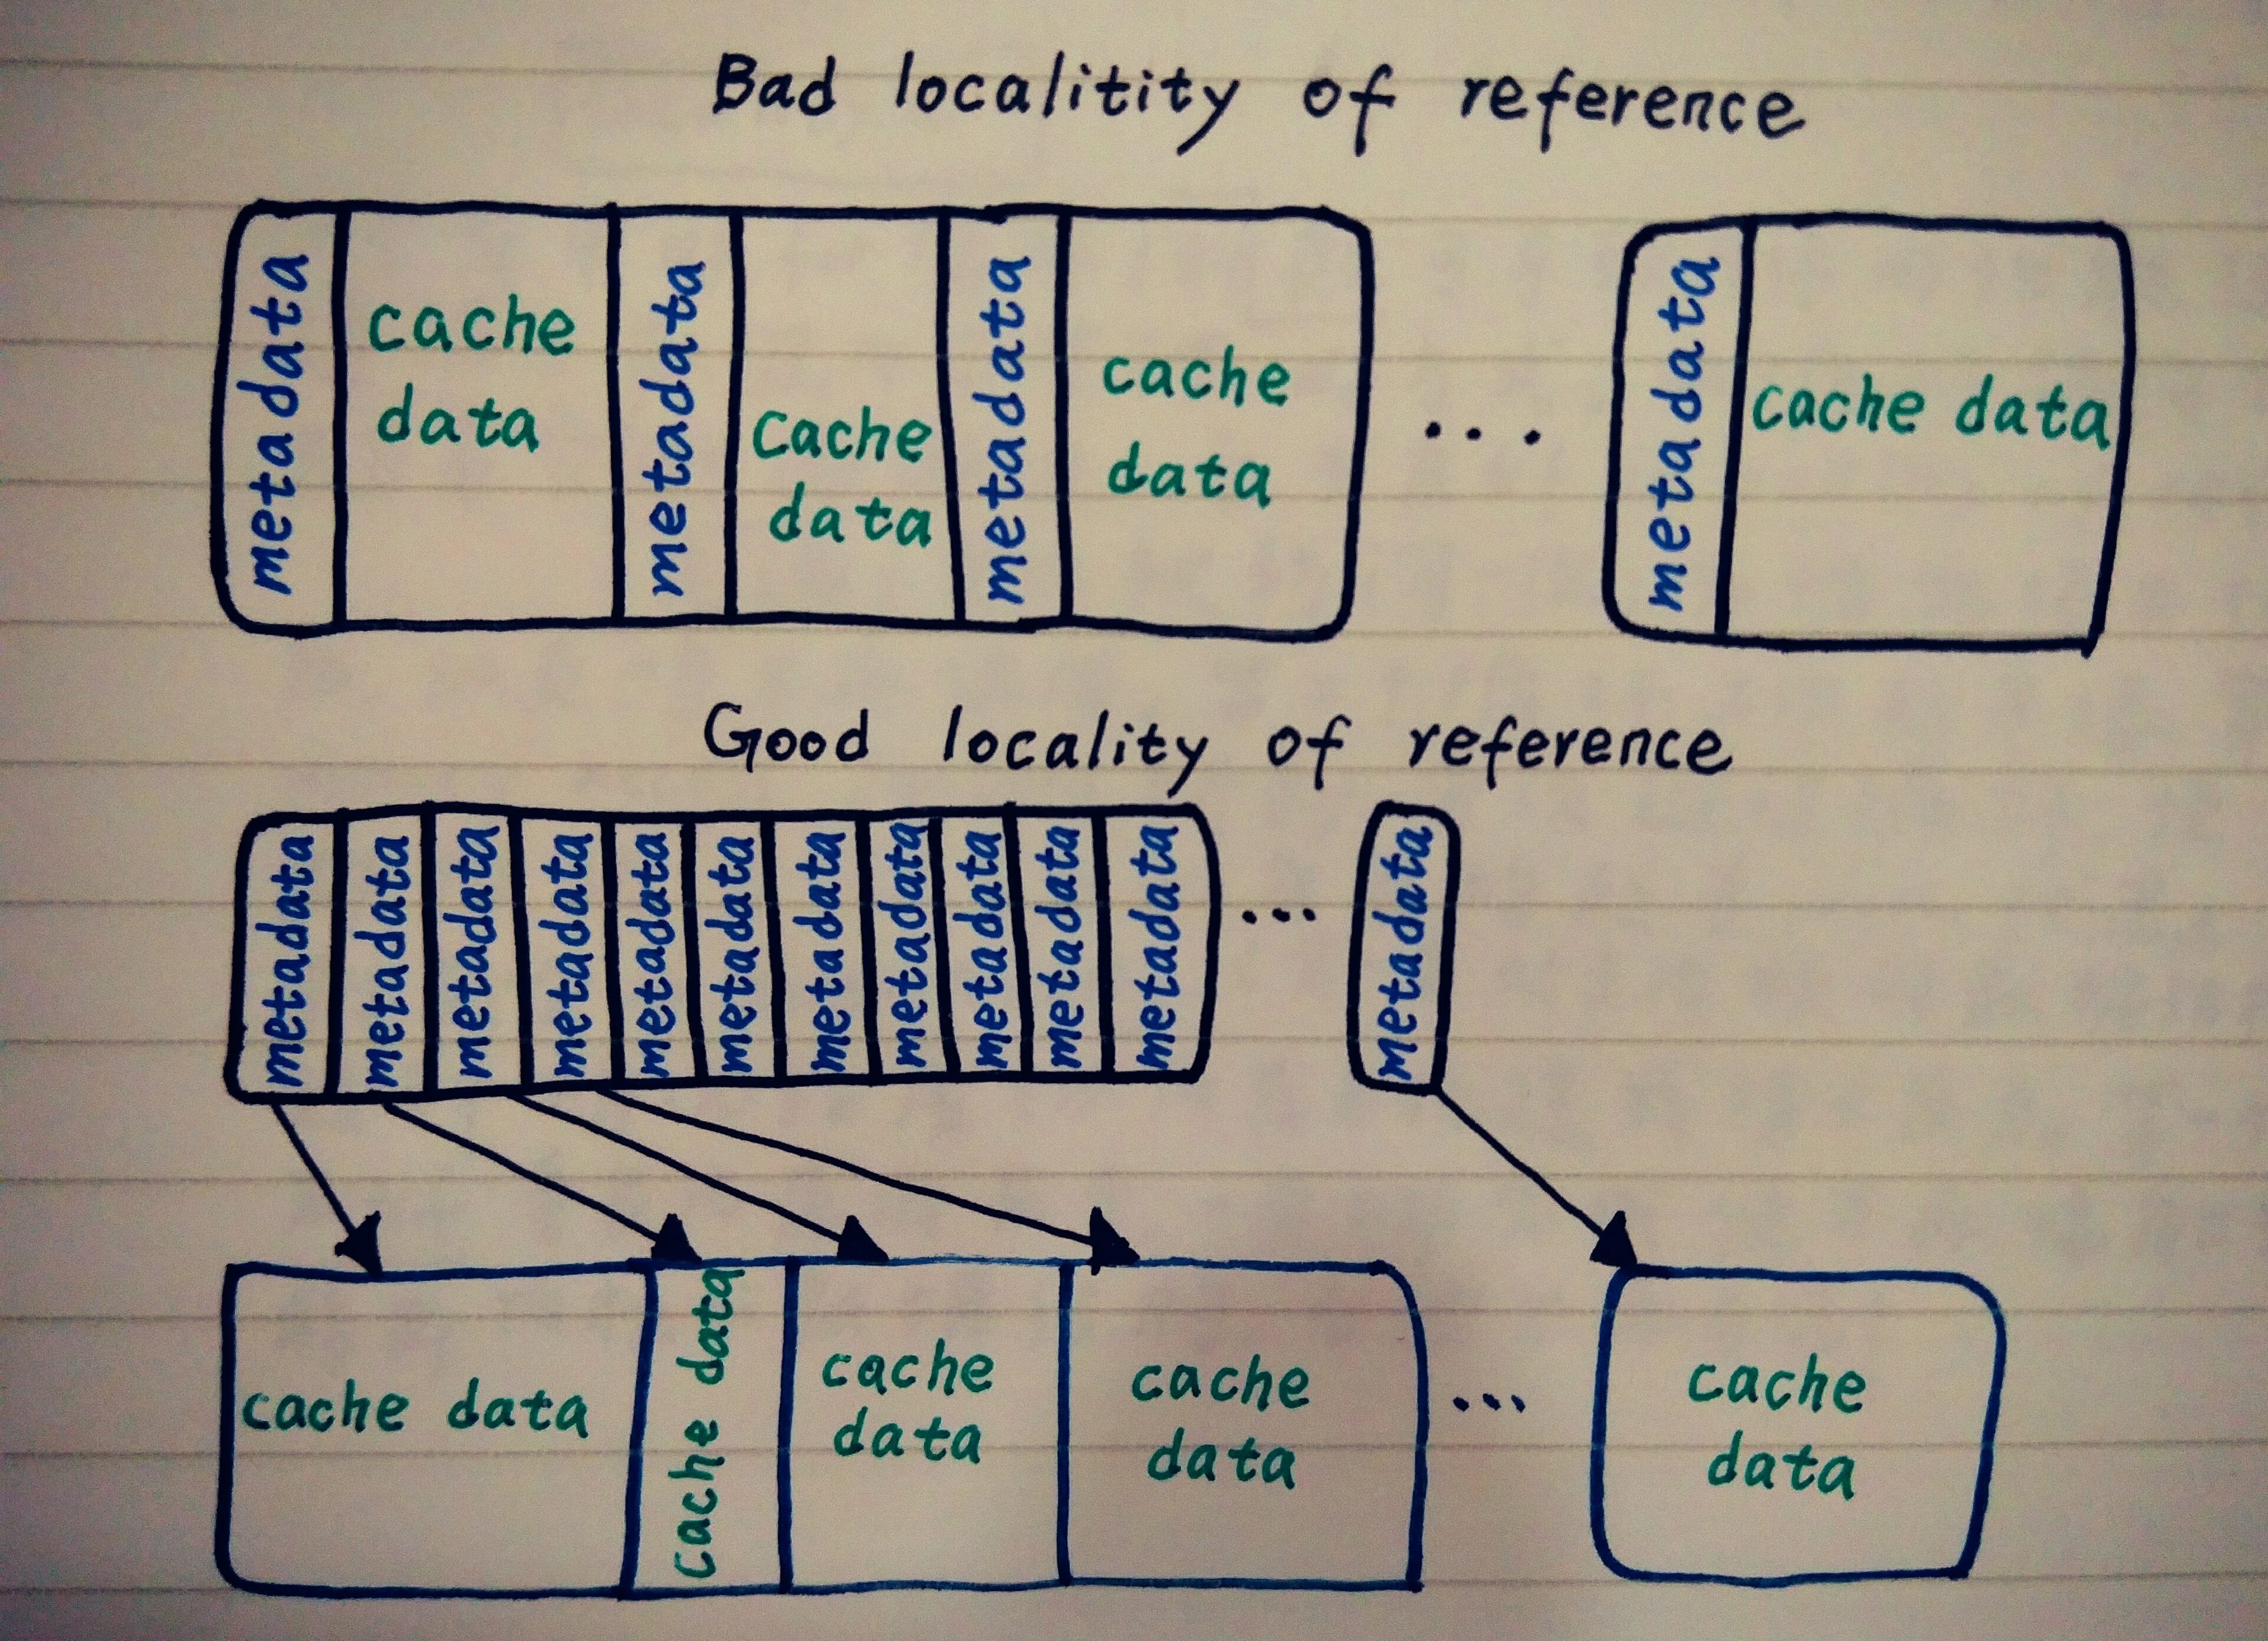 Bad localitity of reference
metadata
cache
data
metadata
Cache
data
metadata
cache
data
...
metadata
cache data
Good locality of reference
metadata
metadata
metadata
metadata
metadata
metadata
metadata
metadata
metadata
metadata
metadata
...
metadata
cache data
cache data
cache
data
cache
data
...
cache
data